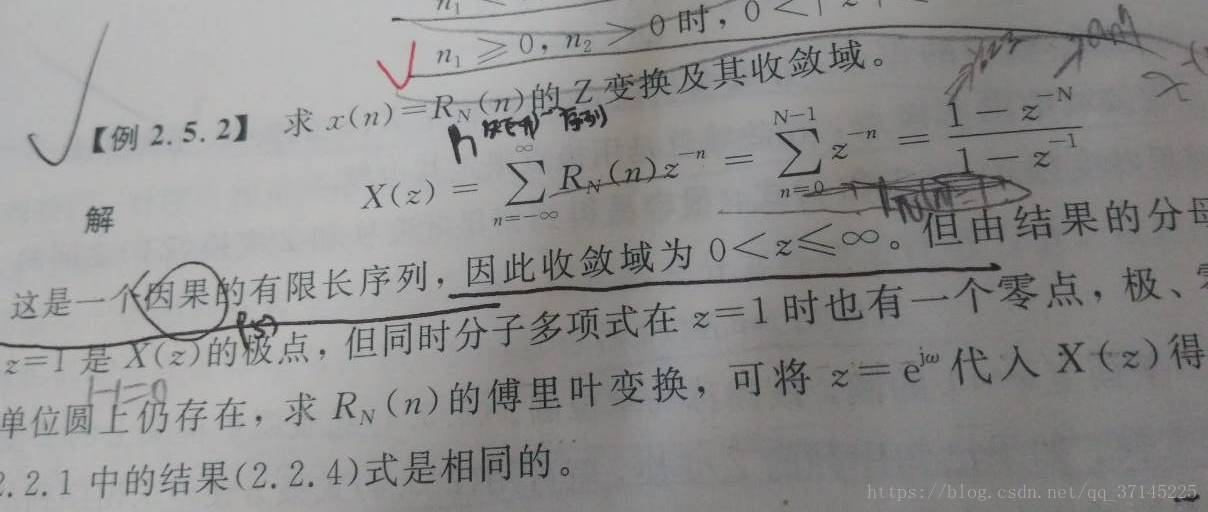 n₁
n₁ ⩾ 0, n₂ > 0 时, 0 < | z |
【例 2.5.2】 求 x(n)=R_N(n)的 Z 变换及其收敛域。
n 序列
解 X(z) = ∑_{n=-∞}^{∞} R_N(n)z^{-n} = ∑_{n=0}^{N-1} z^{-n} = \frac{1-z^{-N}}{1-z^{-1}}
这是一个因果的有限长序列, 因此收敛域为 0<z⩽∞。但由结果的分母
z=1 是 X(z)的极点, 但同时分子多项式在 z=1 时也有一个零点, 极、
1-1=0
单位圆上仍存在, 求 R_N(n)的傅里叶变换, 可将 z=e^{jω}代入 X(z)得
2.2.1 中的结果(2.2.4)式是相同的。
https://blog.csdn.net/qq_37145225